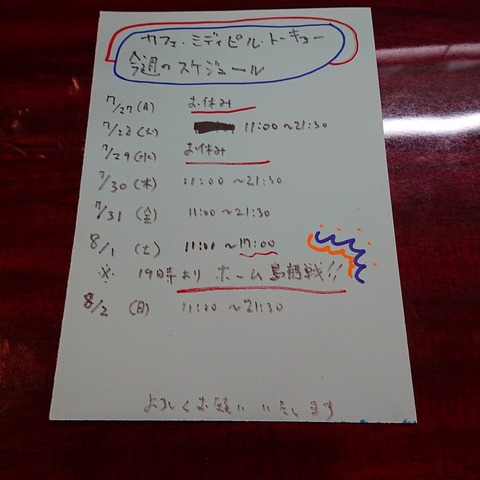 カフェ・ミディピル・トーキョー
今週のスケジュール
7/27(月) お休み
7/28(火) 11:00〜21:30
7/29(水) お休み
7/30(木) 11:00〜21:30
7/31(金) 11:00〜21:30
8/1(土) 11:00〜17:00
※ 19時よりホーム鳥栖戦!!
8/2(日) 11:00〜21:30
よろしくお願いいたします